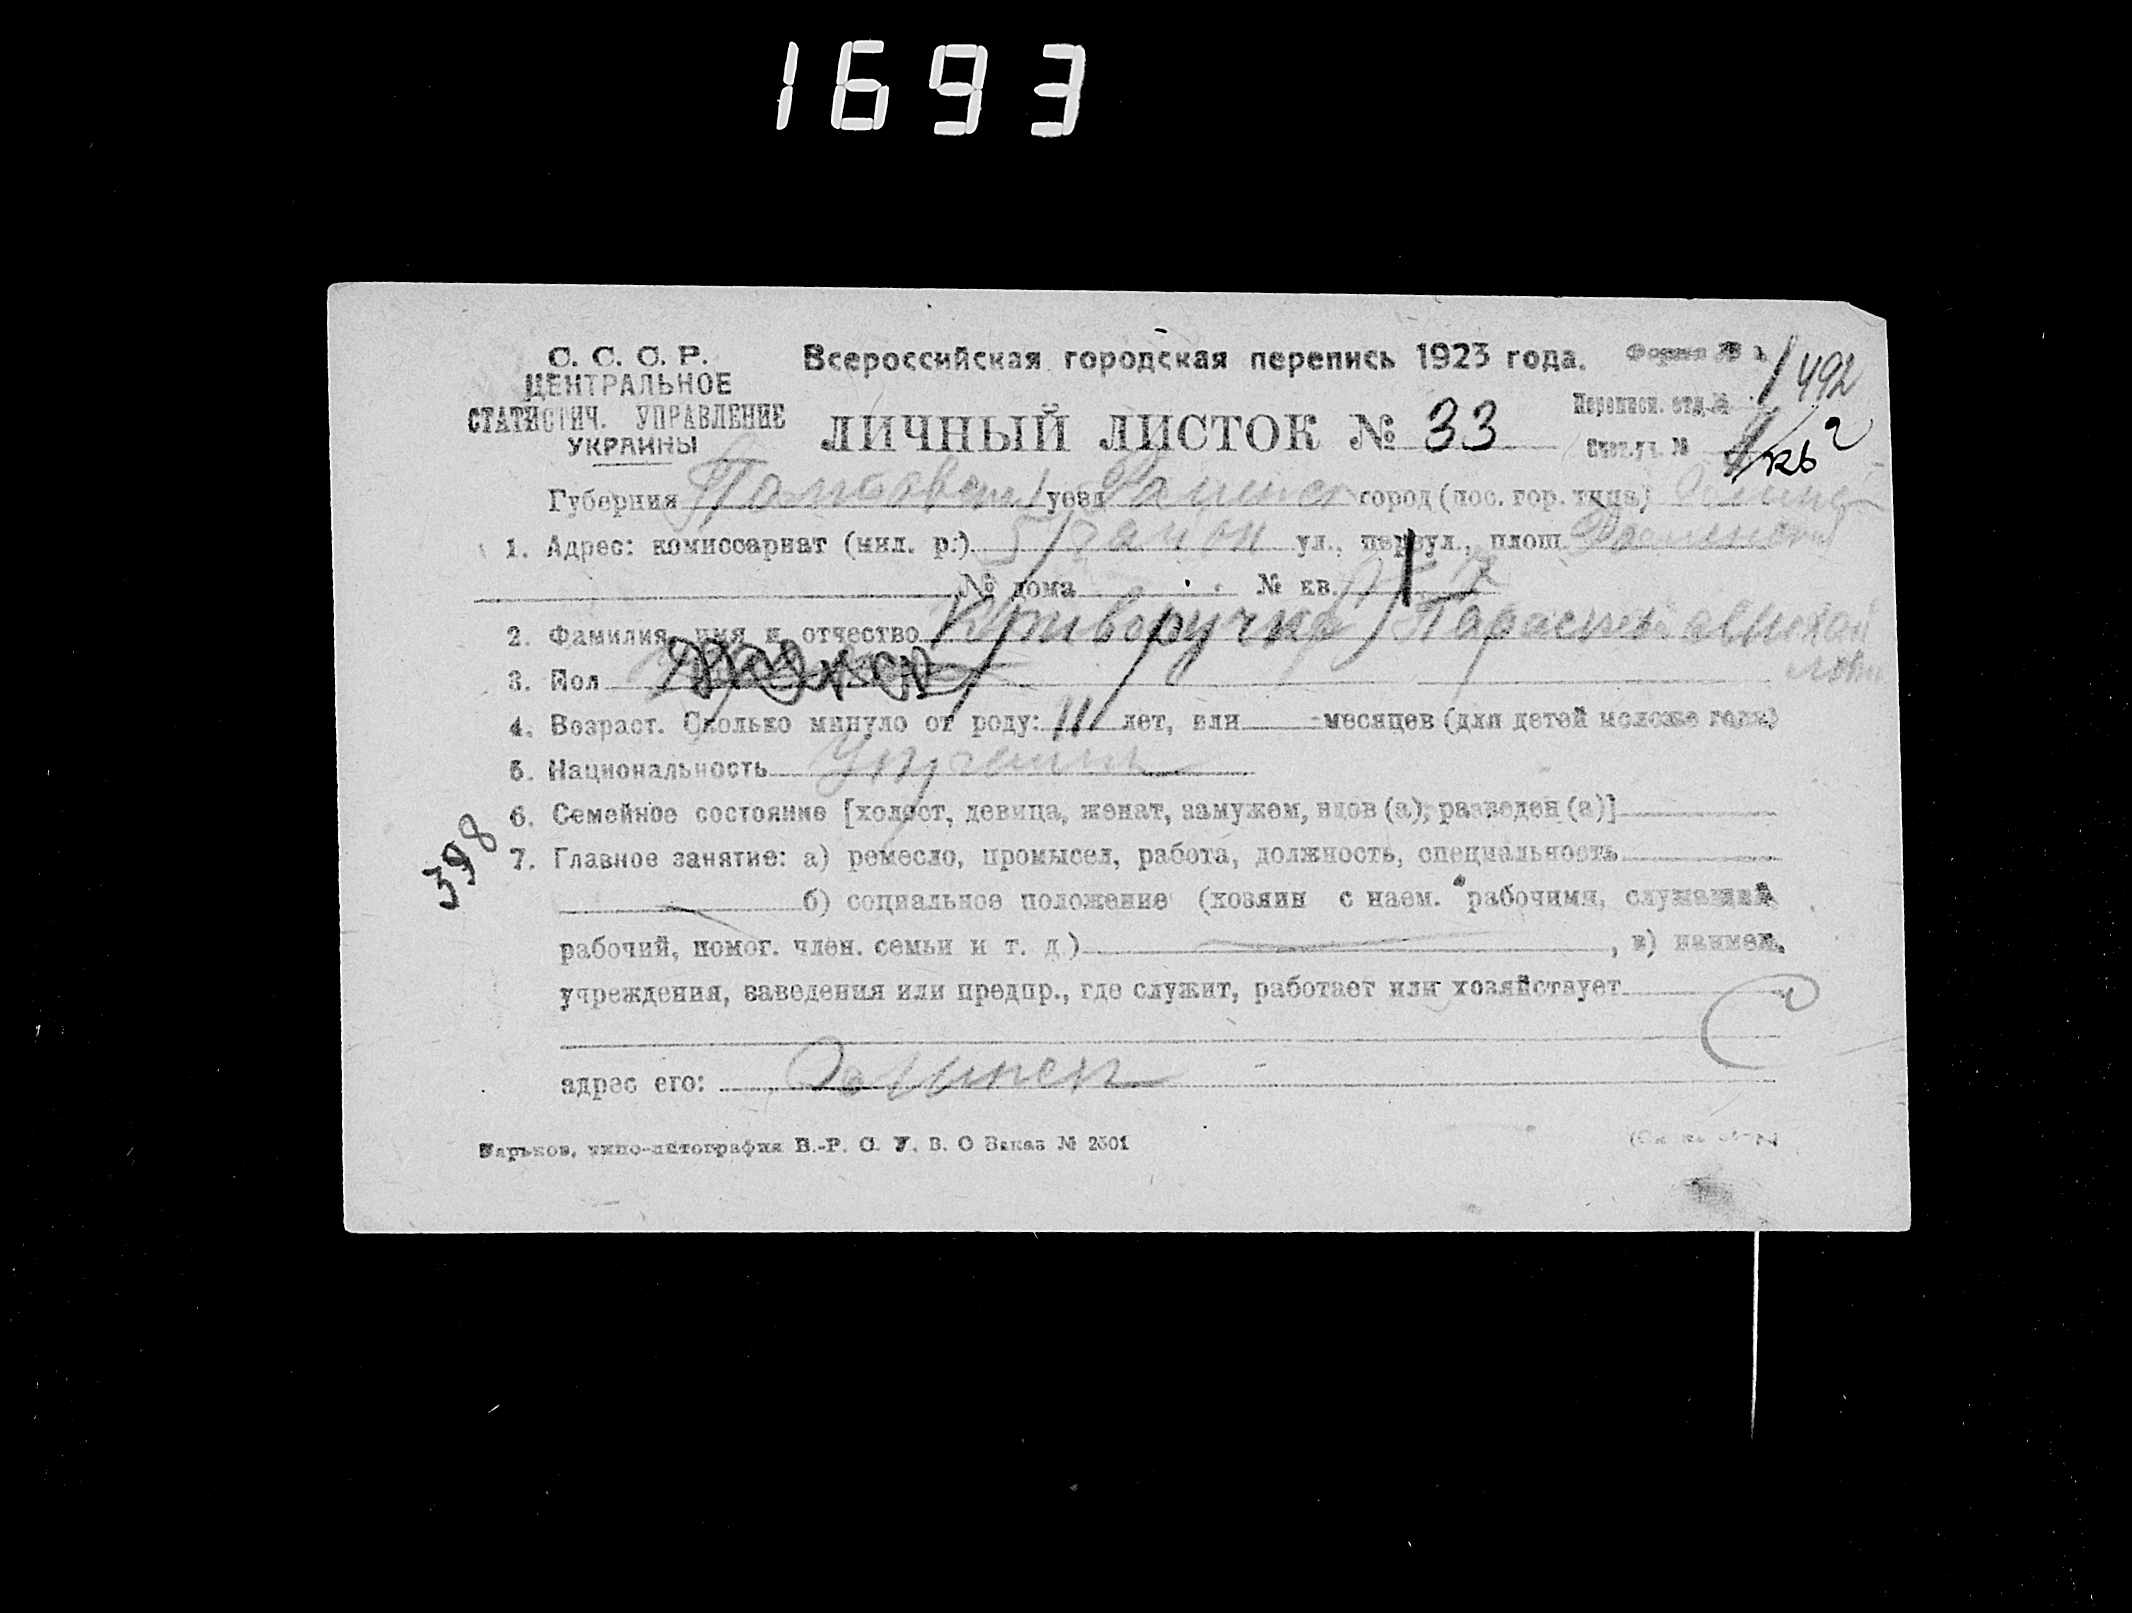 1693
С. С. С. Р.
ЦЕНТРАЛЬНОЕ
СТАТИСТИЧ. УПРАВЛЕНИЕ
УКРАИНЫ
Всероссийская городская перепись 1923 года.
Форма № 1
492
ЛИЧНЫЙ ЛИСТОК № 33
Переписн. отд. №
Счет. уч. №
Губерния уезд город (пос. гор. типа)
1. Адрес: комиссариат (мил. р.) 5 район ул., переул., площ.
№ дома № кв.
2. Фамилия, имя и отчество Криворучко
3. Пол
4. Возраст. Сколько минуло от роду: 11 лет, или месяцев (для детей моложе года)
5. Национальность
6. Семейное состояние [холост, девица, женат, замужем, вдов (а), разведен (а)]
7. Главное занятие: а) ремесло, промысел, работа, должность, специальность
б) социальное положение (хозяин с наем. рабочими, служащий
рабочий, помог. член. семьи и т. д.) , в) наимен.
учреждения, заведения или предпр., где служит, работает или хозяйствует
адрес его:
398
Харьков, типо-литография В.-Р. С. У. В. О Заказ № 2301